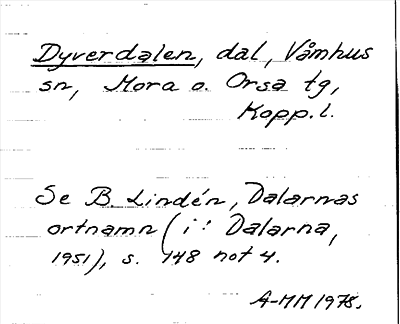 Dyverdalen, dal, Våmhus
sn, Mora o. Orsa tg,
Kopp.l.
Se B. Lindén, Dalarnas
ortnamn (i: Dalarna,
1951), s. 148 not 4.
A-MM 1978.